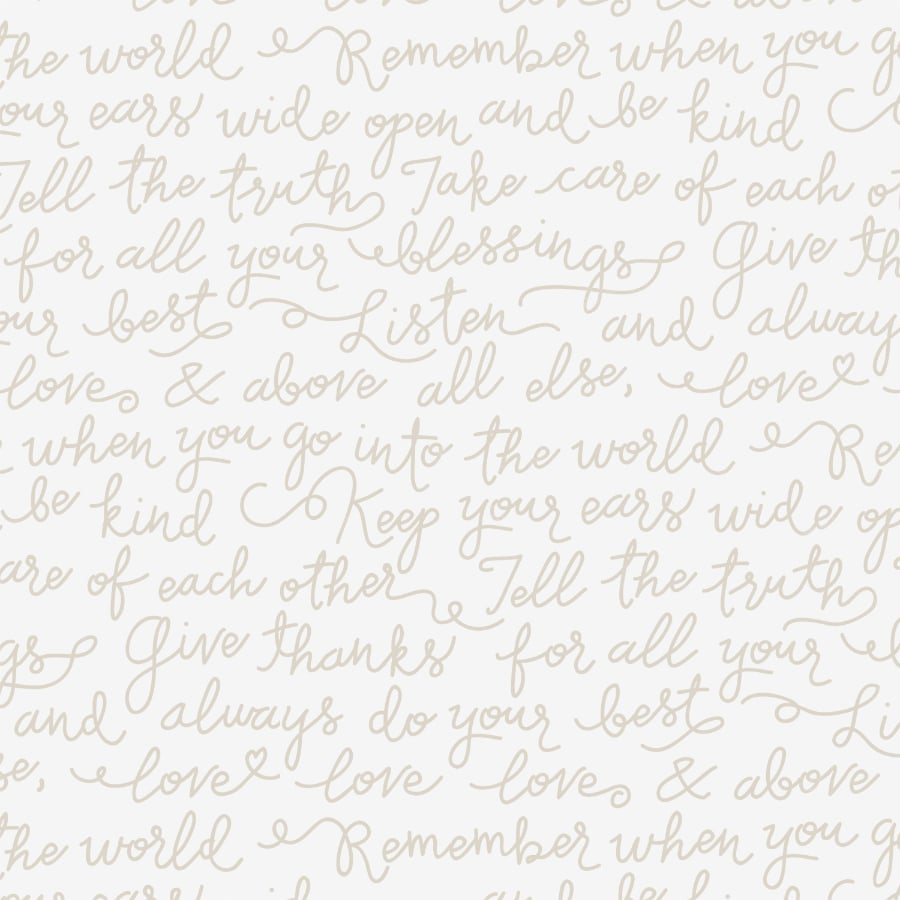 love love love & above
the world Remember when you go
your ears wide open and be kind
Tell the truth Take care of each
for all your blessings Give
your best Listen and always
love & above all else, love
when you go into the world Re
be kind Keep your ears wide op
are of each other Tell the truth
gs Give thanks for all your
and always do your best Li
se, love love love & above
the world Remember when you go
your ears wide and be